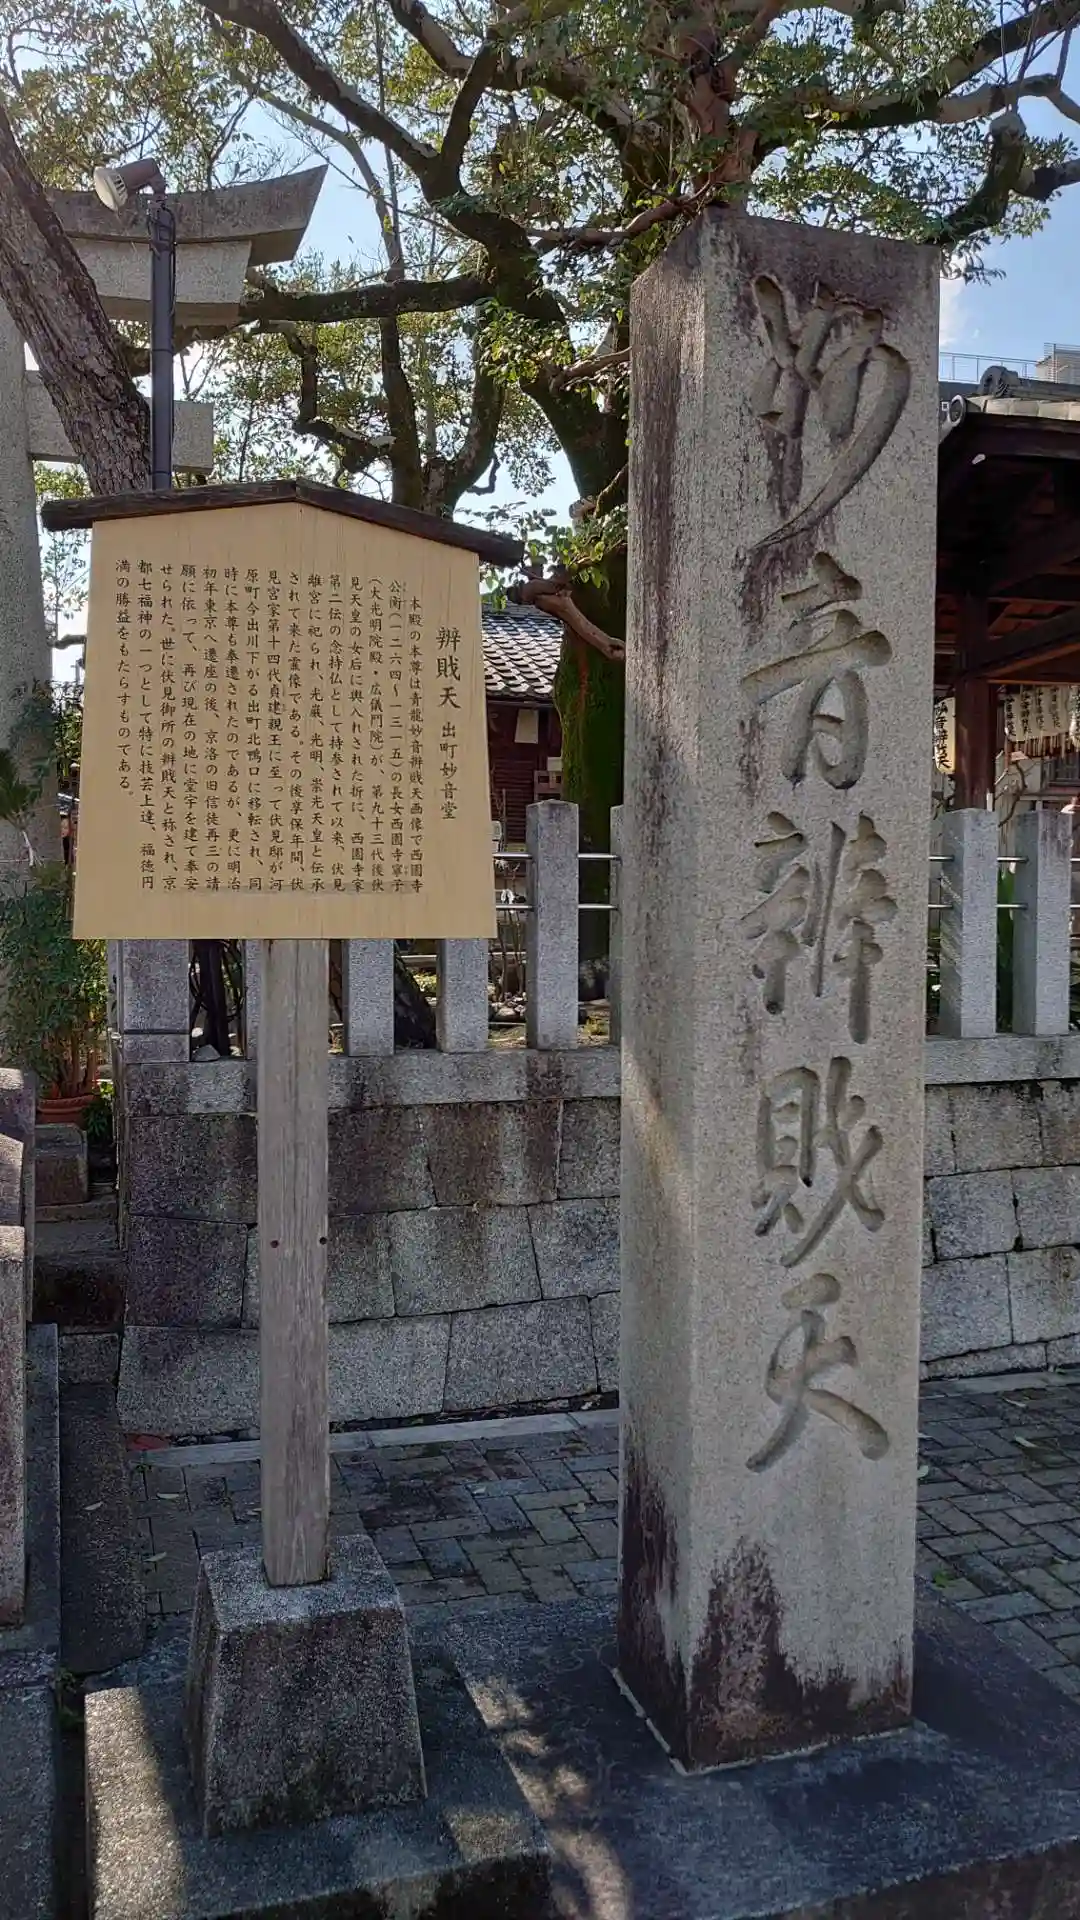 妙音辨財天
辨財天 出町妙音堂
本殿の本尊は青龍妙音辯財天画像で西園寺
公衡(一二六四〜一三一五)の長女西園寺寧子
(太光明院殿・広儀門院)が、第九十三代後伏
見天皇の女后に輿入れされた折に、西園寺家
第二伝の念持仏として持参されて以来、伏見
離宮に祀られ、光厳、光明、崇光天皇と伝承
されて来た霊像である。その後享保年間、伏
見宮家第十四代貞建親王に至って伏見邸が河
原町今出川下がる出町北鴨口に移転され、同
時に本尊も奉遷されたのであるが、更に明治
初年東京へ遷座の後、京洛の旧信徒再三の請
願に依って、再び現在の地に堂宇を建て奉安
せられた。世に伏見御所の辨財天と称され、京
都七福神の一つとして特に技芸上達、福徳円
満の勝益をもたらすものである。